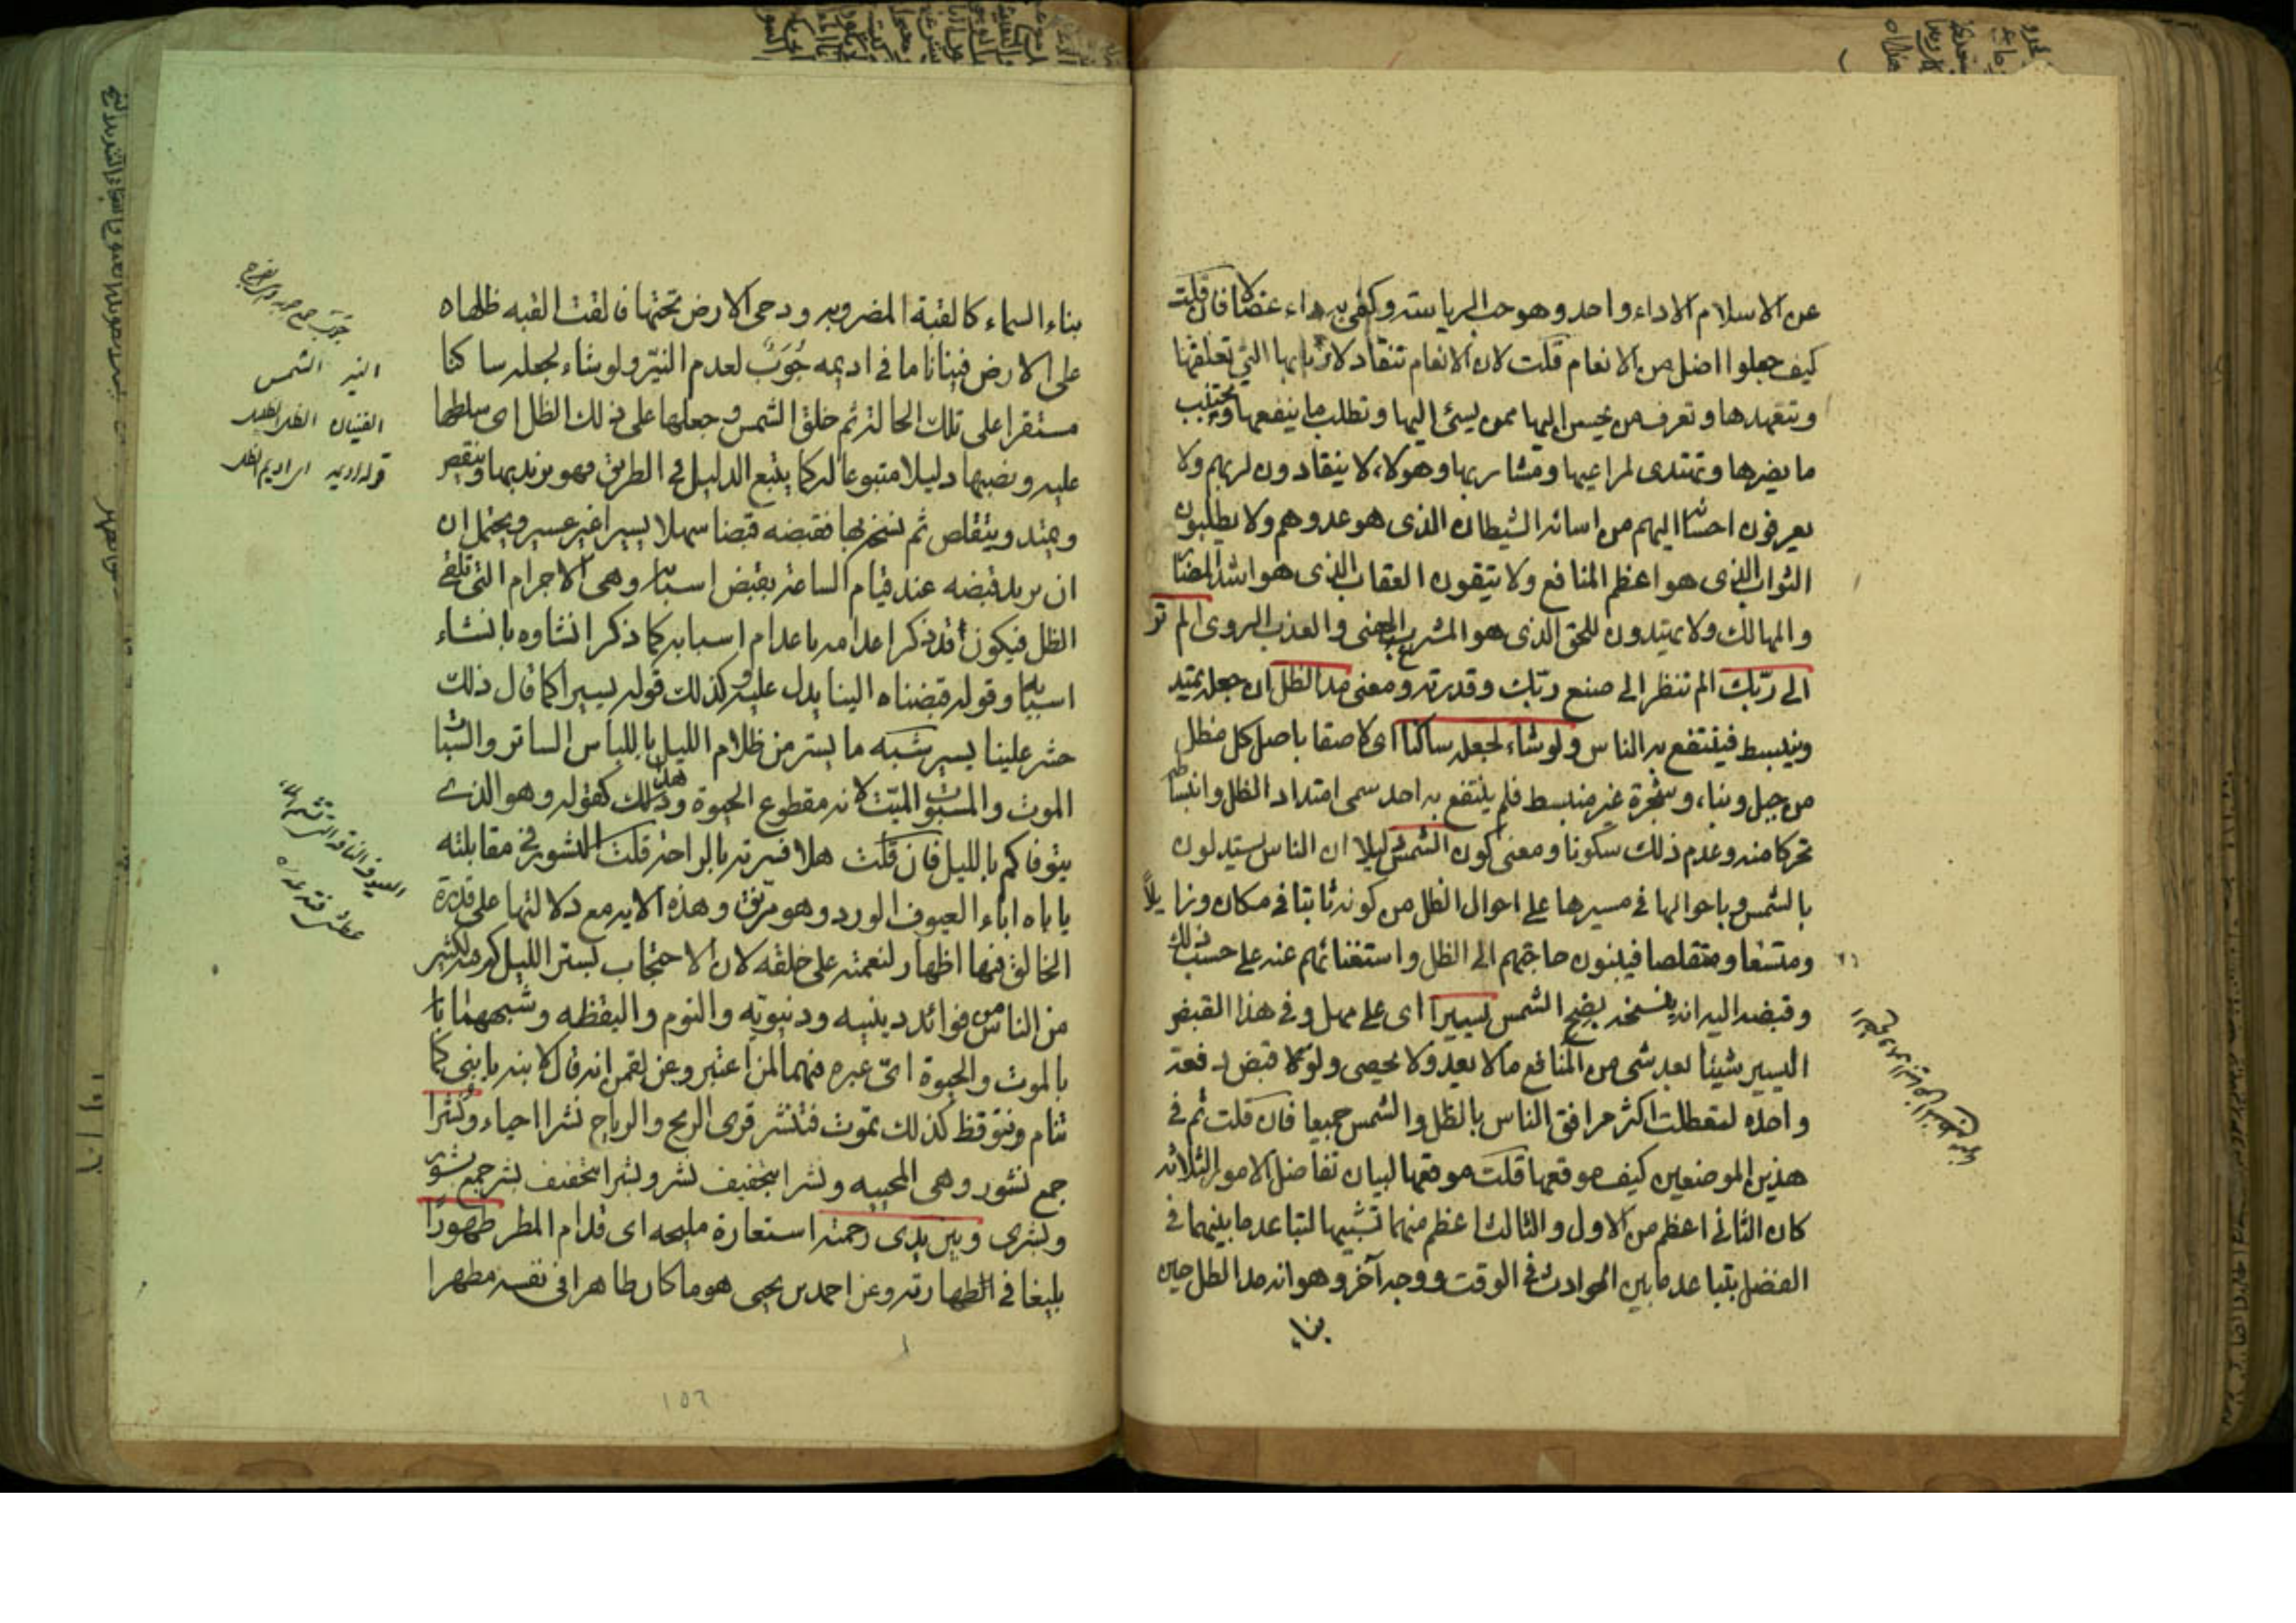 عن الاسلام الاداء واحد وهو حب الرياسة وكفى به داء عضالا فان قلت
كيف جعلوا اضل من الانعام قلت لان الانعام تنقاد لاربابها التي تعلفها
وتتعهدها وتعرف من يحسن اليها ممن يسئ اليها وتطلب ما ينفعها وتجتنب
ما يضرها وتهتدى لمراعيها ومشاربها وهولاء لا ينقادون لربهم ولا
يعرفون احسانه اليهم من اساءة الشيطان الذى هو عدوهم ولا يطلبون
الثواب الذى هو اعظم المنافع ولا يتقون العقاب الذى هو اشد المضار
والمهالك ولا يهتدون للحق الذى هو المشرع الهنى والعذب الروى الم تر
الى ربّك الم تنظر الى صنع ربّك وقدرته ومعنى مد الظل ان جعله يمتد
وينبسط فينتفع به الناس ولو شاء لجعله ساكنا اى لاصقا باصل كل مظل
من جبل وبناء وشجرة غير منبسط فلم ينتفع به احد سمى امتداد الظل وانبساطه
تحركا منه وعدم ذلك سكونا ومعنى كون الشمس دليلا ان الناس يستدلون
بالشمس وباحوالها فى مسيرها على احوال الظل من كونه ثابتا فى مكان وزايلاً
ومتسعا ومتقلصا فيبنون حاجتهم الى الظل واستغنائهم عنه على حسب ذلك
وقبضه اليه انه ينسخه بضح الشمس يسيرا اى على مهل وفى هذا القبض
اليسير شيئا بعد شى من المنافع ما لا يعد ولا يحصى ولو قبض دفعة
واحدة لتعطلت اكثر مرافق الناس بالظل والشمس جميعا فان قلت ثم فى
هذين الموضعين كيف موقعها قلت موقعها لبيان تفاضل الامور الثلاثة
كان الثانى اعظم من الاول والثالث اعظم منهما تشبيها لتباعد ما بينهما فى
الفضل بتباعد ما بين الحوادث فى الوقت ووجه آخر وهو انه مد الظل حين
بناء
بناء السماء كالقبة المضروبه ودحى الارض تحتها فالقت القبه ظلها
على الارض فينانا ما فى اديمه جُوَبٌ لعدم النيّر ولو شاء لجعله ساكنا
مستقرا على تلك الحالة ثم خلق الشمس وجعلها على ذلك الظل اى سلطها
عليه ونصبها دليلا متبوعا له كما يتبع الدليل فى الطريق فهو يزيد بها وينقص
ويمتد ويتقلص ثم نسخه بها فقبضه قبضا سهلا يسيرا غير عسير ويحتمل ان
ان يريد قبضه عند قيام الساعة بقبض اسبابه وهى الاجرام التى تلقى
الظل فيكون قد ذكر اعدامه باعدام اسبابه كما ذكر انشاوه بانشاء
اسبابه وقوله قبضناه الينا يدل عليه وكذلك قوله يسيرا كما قال ذلك
حشر علينا يسير شبه ما يستر من ظلام الليل باللباس الساتر والسبات
الموت والمسبوت الميّت لانه مقطوع الحيوة وهذا كقوله وهو الذى
يتوفاكم بالليل فان قلت هلا فسرته بالراحة قلت النشور فى مقابلته
ياباه اباء العيوف الورد وهو مرنق وهذه الايه مع دلالتها على قدرة
الخالق فيها اظهار لنعمته على خلقه لان الاحتجاب بستر الليل كم فيه لكثير
من الناس من فوائد دينيه ودنيويه والنوم واليقظه وشبههما
بالموت والحيوة اىّ عبره فيهما لمن اعتبر وعن لقمن انه قال لابنه يا بنى كما
تنام وتوقظ كذلك تموت فتنشر قرى الريح والرياح نشرا احياء ونُشُرا
جمع نشور وهى المحييه ونشرا بتخفيف نشر وبشرا بتخفيف بشر جمع بشور
وبشرى وبين يدى رحمته استعارة مليحه اى قدام المطر طهورًا
بليغا فى الطهارته وعن احمد بن يحيى هو ما كان طاهرا فى نفسه مطهرا
النير الشمس
١٥٦